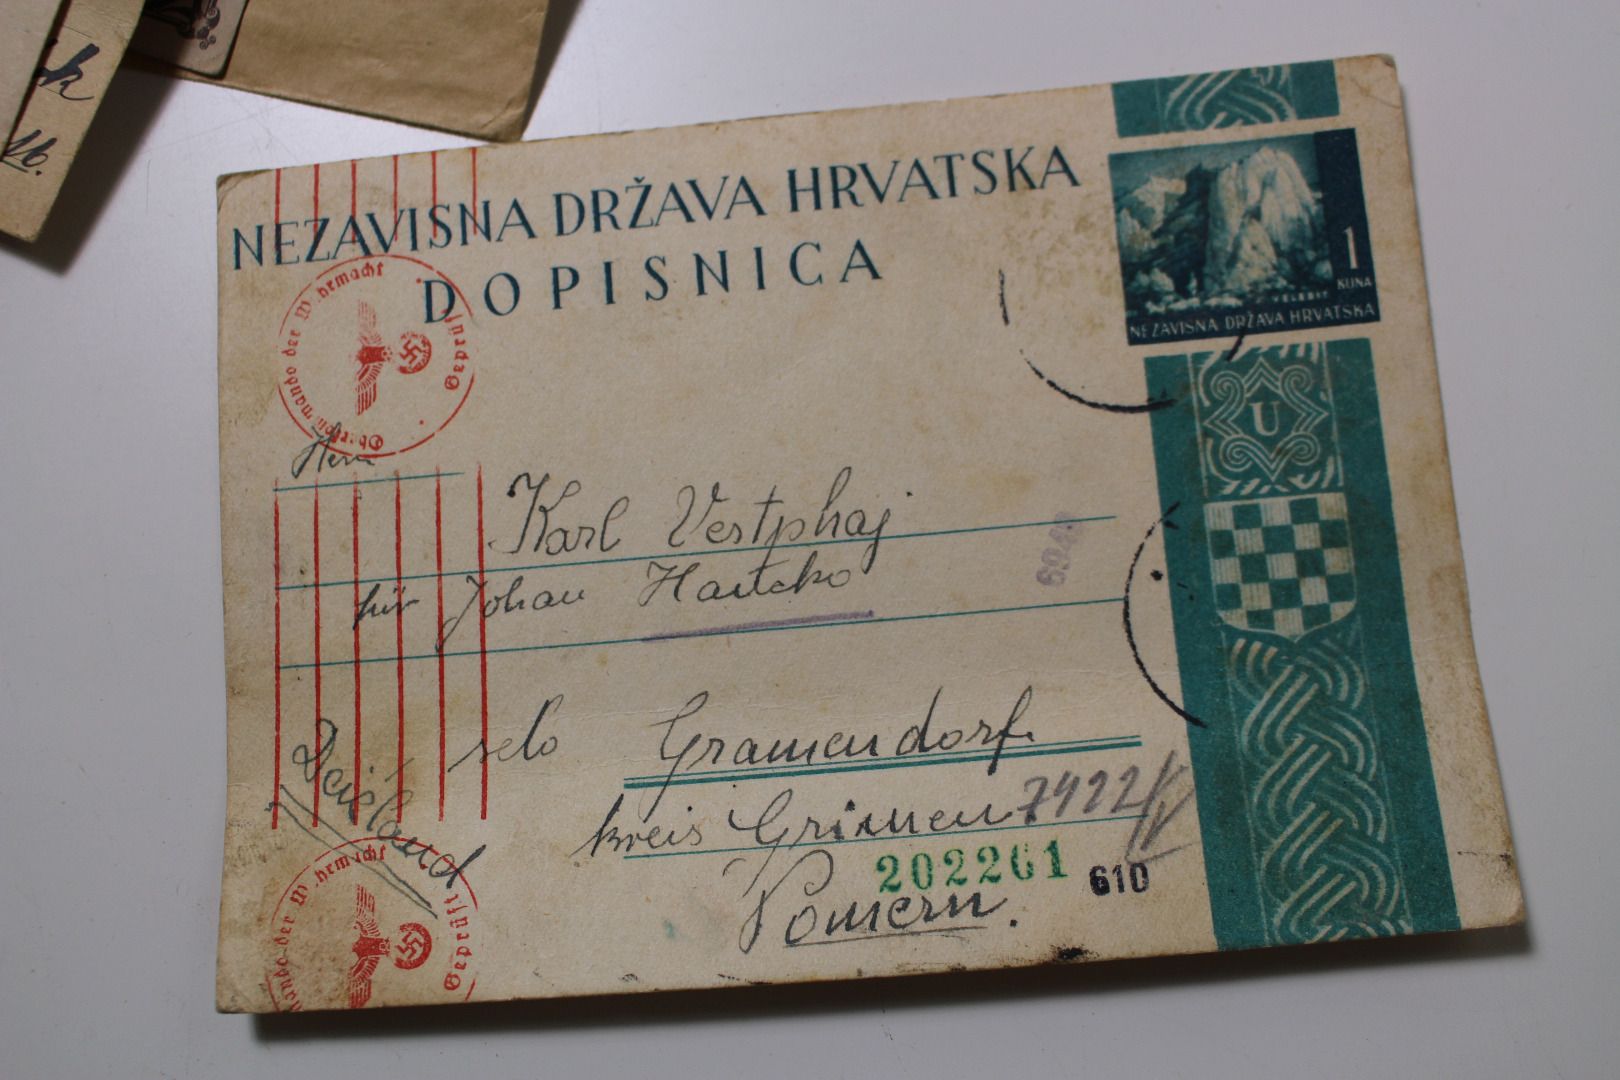 NEZAVISNA DRŽAVA HRVATSKA
DOPISNICA
1
KUNA
VELEBIT
NEZAVISNA DRŽAVA HRVATSKA
U
Oberkommando der Wehrmacht
Geprüft
Herrn
Karl Vestphaj
für Johan Hautcko
6940
selo Gramendorf.
Deisland
kreis Grimmen 7422
202261 610
Pomern.
Oberkommando der Wehrmacht
Geprüft